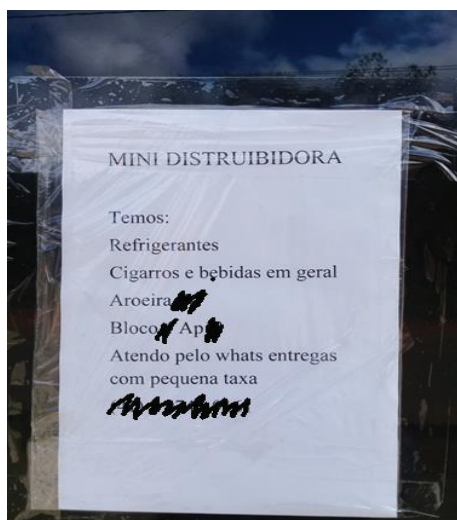 MINI DISTRUIBIDORA
Temos:
Refrigerantes
Cigarros e bebidas em geral
Aroeira
Bloco Ap
Atendo pelo whats entregas
com pequena taxa